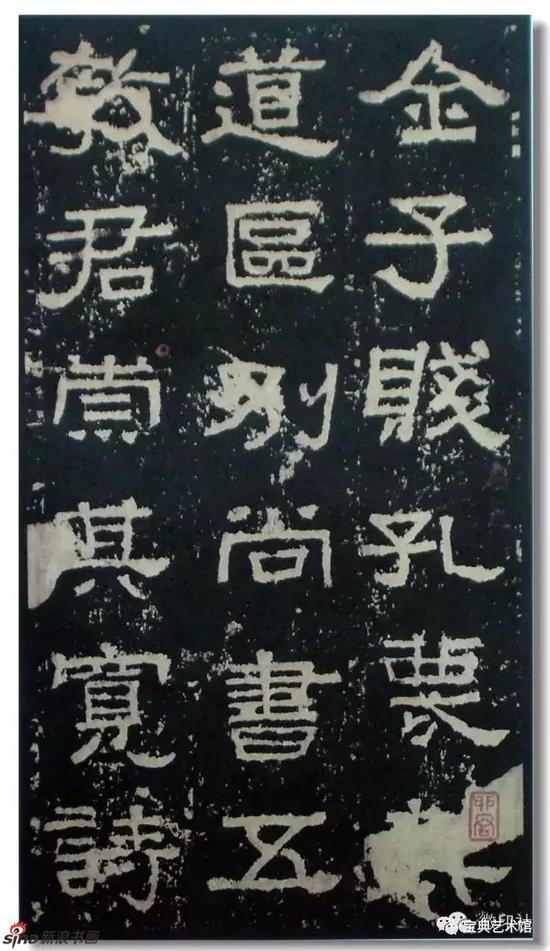 全子賤孔蔑
道區別尚書五
教君崇其寬詩
sina新浪书画
宝典艺术馆